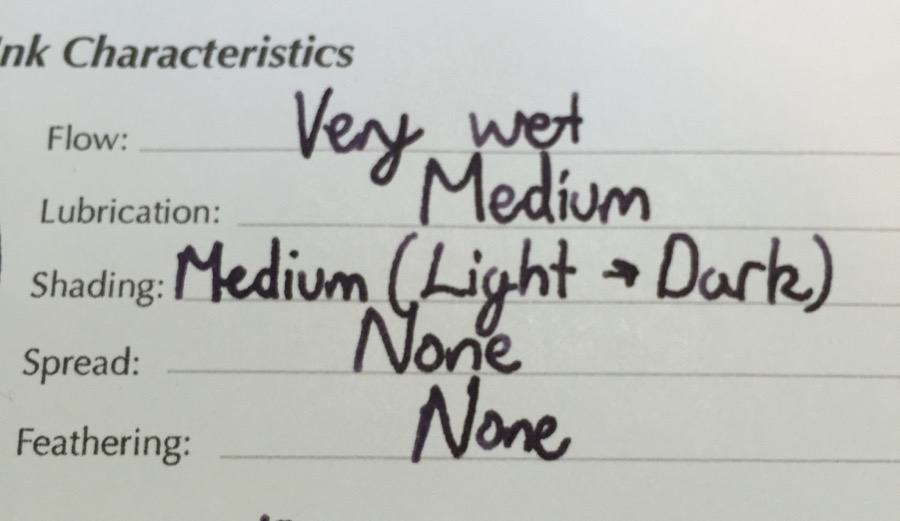 Ink Characteristics
Flow: Very wet
Lubrication: Medium
Shading: Medium (Light → Dark)
Spread: None
Feathering: None